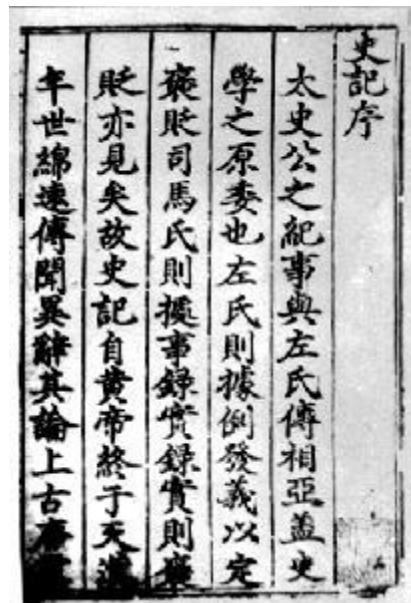 史記序
太史公之紀事與左氏傳相亞蓋史
學之原委也左氏則據例發義以定
褒貶司馬氏則據事録實録實則褒
貶亦見矣故史記自黄帝終于天漢
年世綿遠傳聞異辭其論上古唐